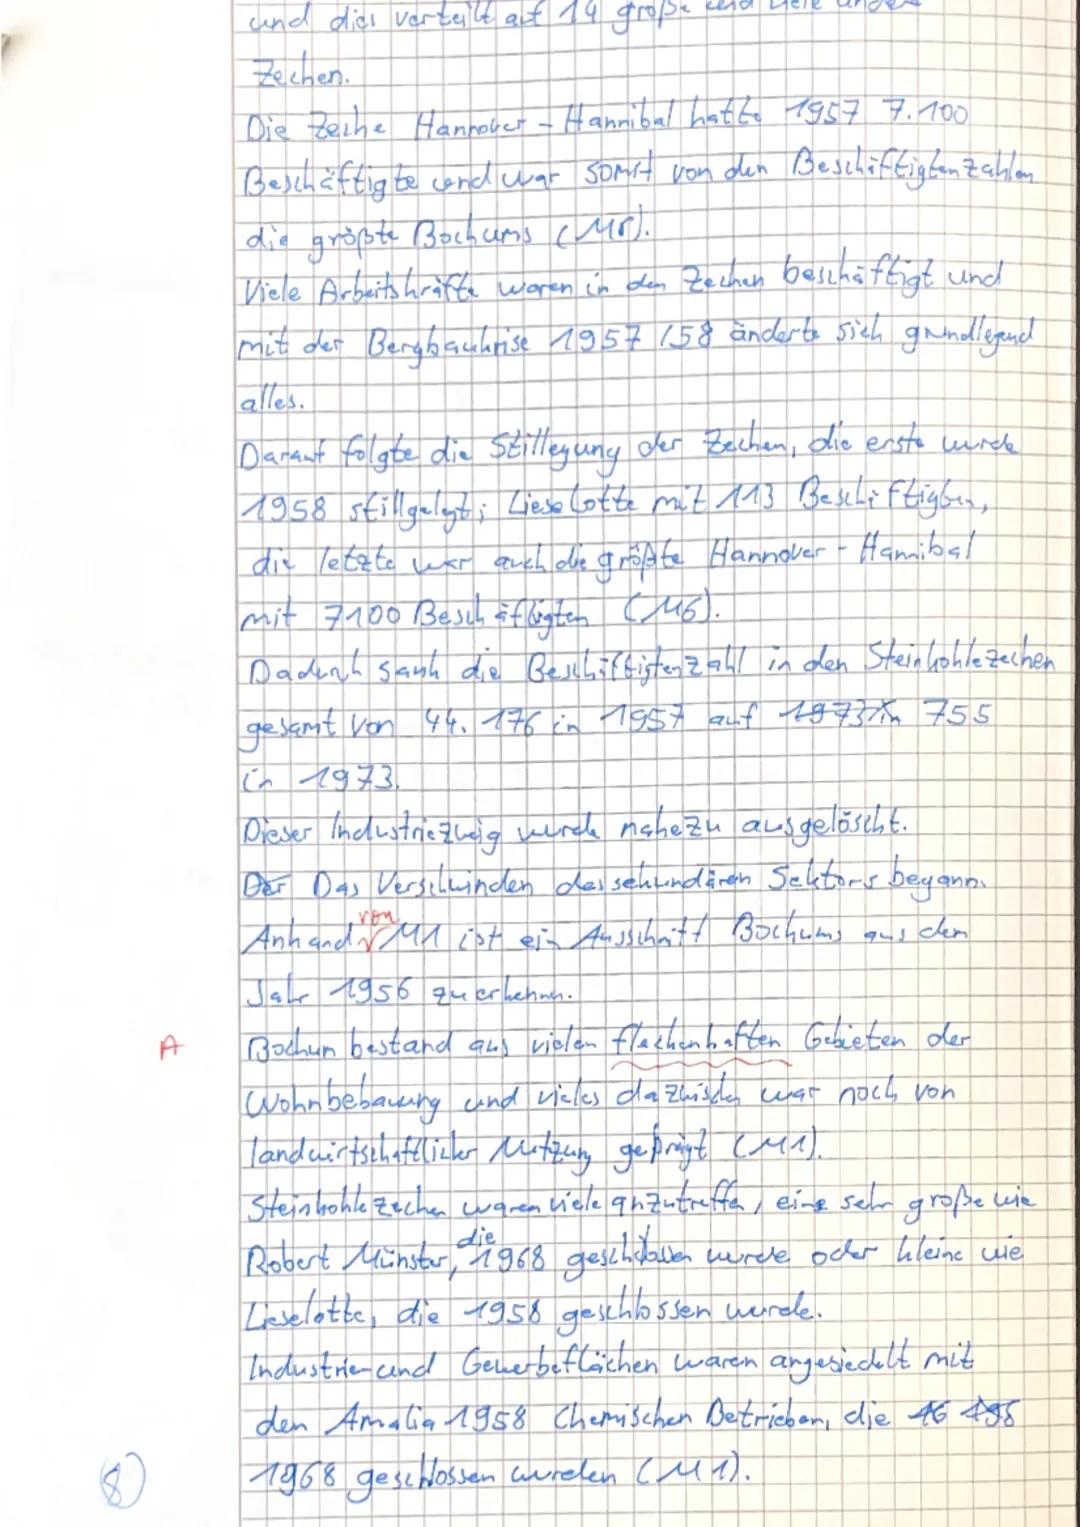 und dies verteilt auf 14 große und viele andere
Zechen.
Die Zeche Hannover-Hannibal hatte 1957 7.100
Beschäftigte und war somit von den Beschäftigtenzahlen
die größte Bochums (M5).
Viele Arbeitskräfte waren in den Zechen beschäftigt und
mit der Bergbaukrise 1957/58 änderte sich grundlegend
alles.
Darauf folgte die Stillegung der Zechen, die erste wurde
1958 stillgelegt; Lieselotte mit 113 Beschäftigten,
die letzte war auch die größte Hannover-Hannibal
mit 7100 Beschäftigten (M6).
Dadurch sank die Beschäftigtenzahl in den Steinkohlezechen
gesamt von 44.176 in 1957 auf 1973 in 755
in 1973.
Dieser Industriezweig wurde nahezu ausgelöscht.
Der Das Verschwinden des sekundären Sektors begann.
Anhand von M1 ist ein Ausschnitt Bochums aus dem
Jahr 1956 zu erkennen.
A Bochum bestand aus vielen flächenhaften Gebieten der
Wohnbebauung und vieles dazwischen war noch von
landwirtschaftlicher Nutzung geprägt (M1).
Steinkohlezechen waren viele anzutreffen, eine sehr große wie
Robert Münster, die 1968 geschlossen wurde oder kleine wie
Lieselotte, die 1958 geschlossen wurde.
Industrie- und Gewerbeflächen waren angesiedelt mit
den Amalia 1958 Chemischen Betrieben, die 16 195
1968 geschlossen wurden (M1).
8